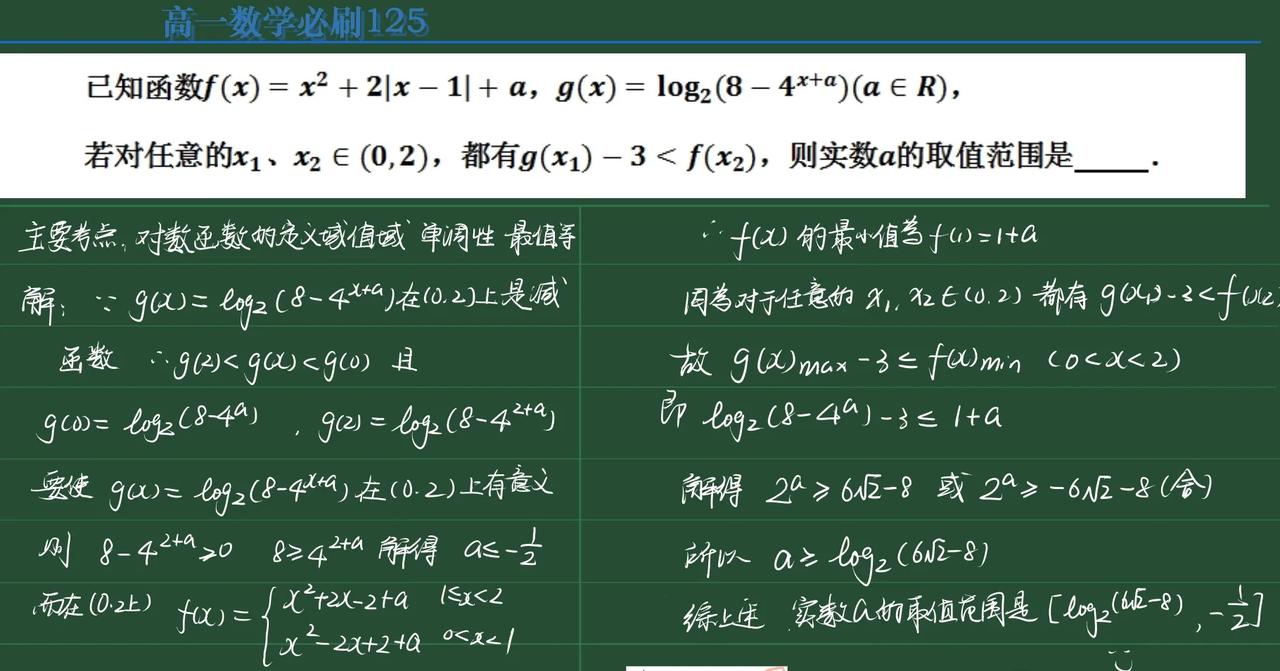 高一数学必刷125
已知函数f(x) = x² + 2|x − 1| + a，g(x) = log₂(8 − 4^{x+a})(a ∈ R)，
若对任意的x₁、x₂ ∈ (0,2)，都有g(x₁) − 3 < f(x₂)，则实数a的取值范围是_____.
主要考点：对数函数的定义域值域 单调性 最值等
解：∵ g(x) = log₂(8−4^{x+a})在(0.2)上是减
函数 ∴g(2)<g(x)<g(0) 且
g(0)= log₂(8−4^a) ，g(2)=log₂(8−4^{2+a})
要使 g(x)=log₂(8−4^{x+a})在(0.2)上有意义
则 8−4^{2+a}≥0 8≥4^{2+a} 解得 a≤−1/2
而在(0.2上) f(x)= { x²+2x−2+a 1≤x<2
x²−2x+2+a 0<x<1
∴ f(x)的最小值为f(1)=1+a
因为对于任意的 x₁, x₂∈(0.2) 都有 g(x₁)−3<f(x₂)
故 g(x)max−3≤f(x)min (0<x<2)
即 log₂(8−4^a)−3≤1+a
解得 2^a≥6√2−8 或 2^a≥−6√2−8(舍)
所以 a≥log₂(6√2−8)
综上述 实数a的取值范围是[log₂(6√2−8), −1/2]